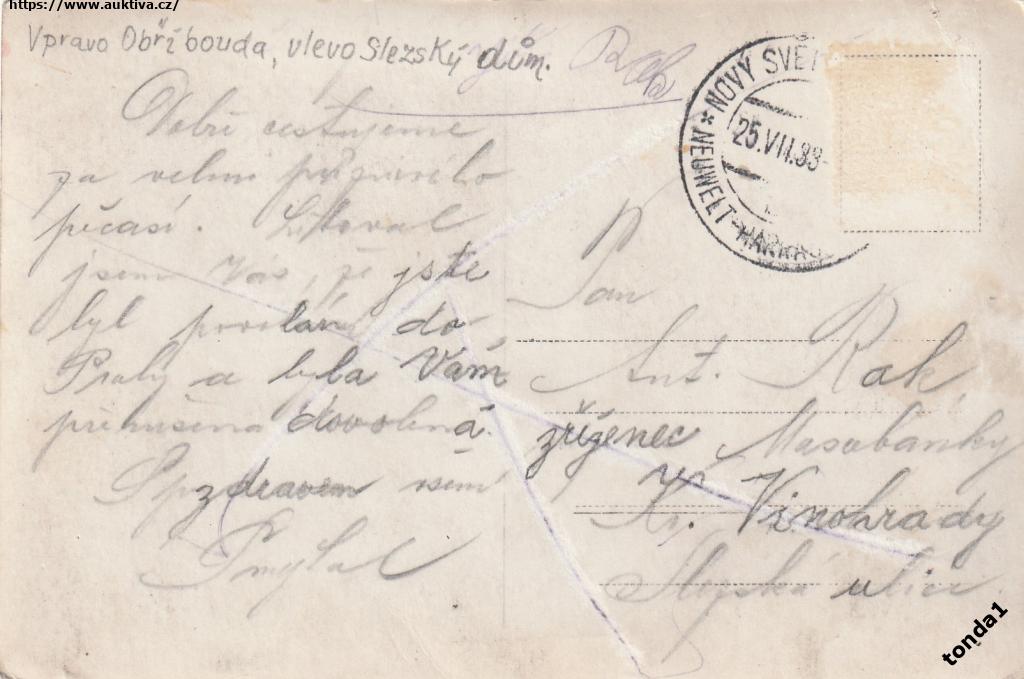 https://www.auktiva.cz/
Vpravo Obří bouda, vlevo Slezský dům.
Rak
Dobře cestujeme
za velmi příznivého
počasí. Litoval
jsem Vás, že jste
byl povolán do
Prahy a byla Vám
přerušena dovolená.
S pozdravem všem
NOVÝ SVĚT
25.VII.33
* NEUWELT-HARRA
Pan
Ant. Rak,
zřízenec Masobanky
Kr. Vinohrady
Slezská ulice
tonda1